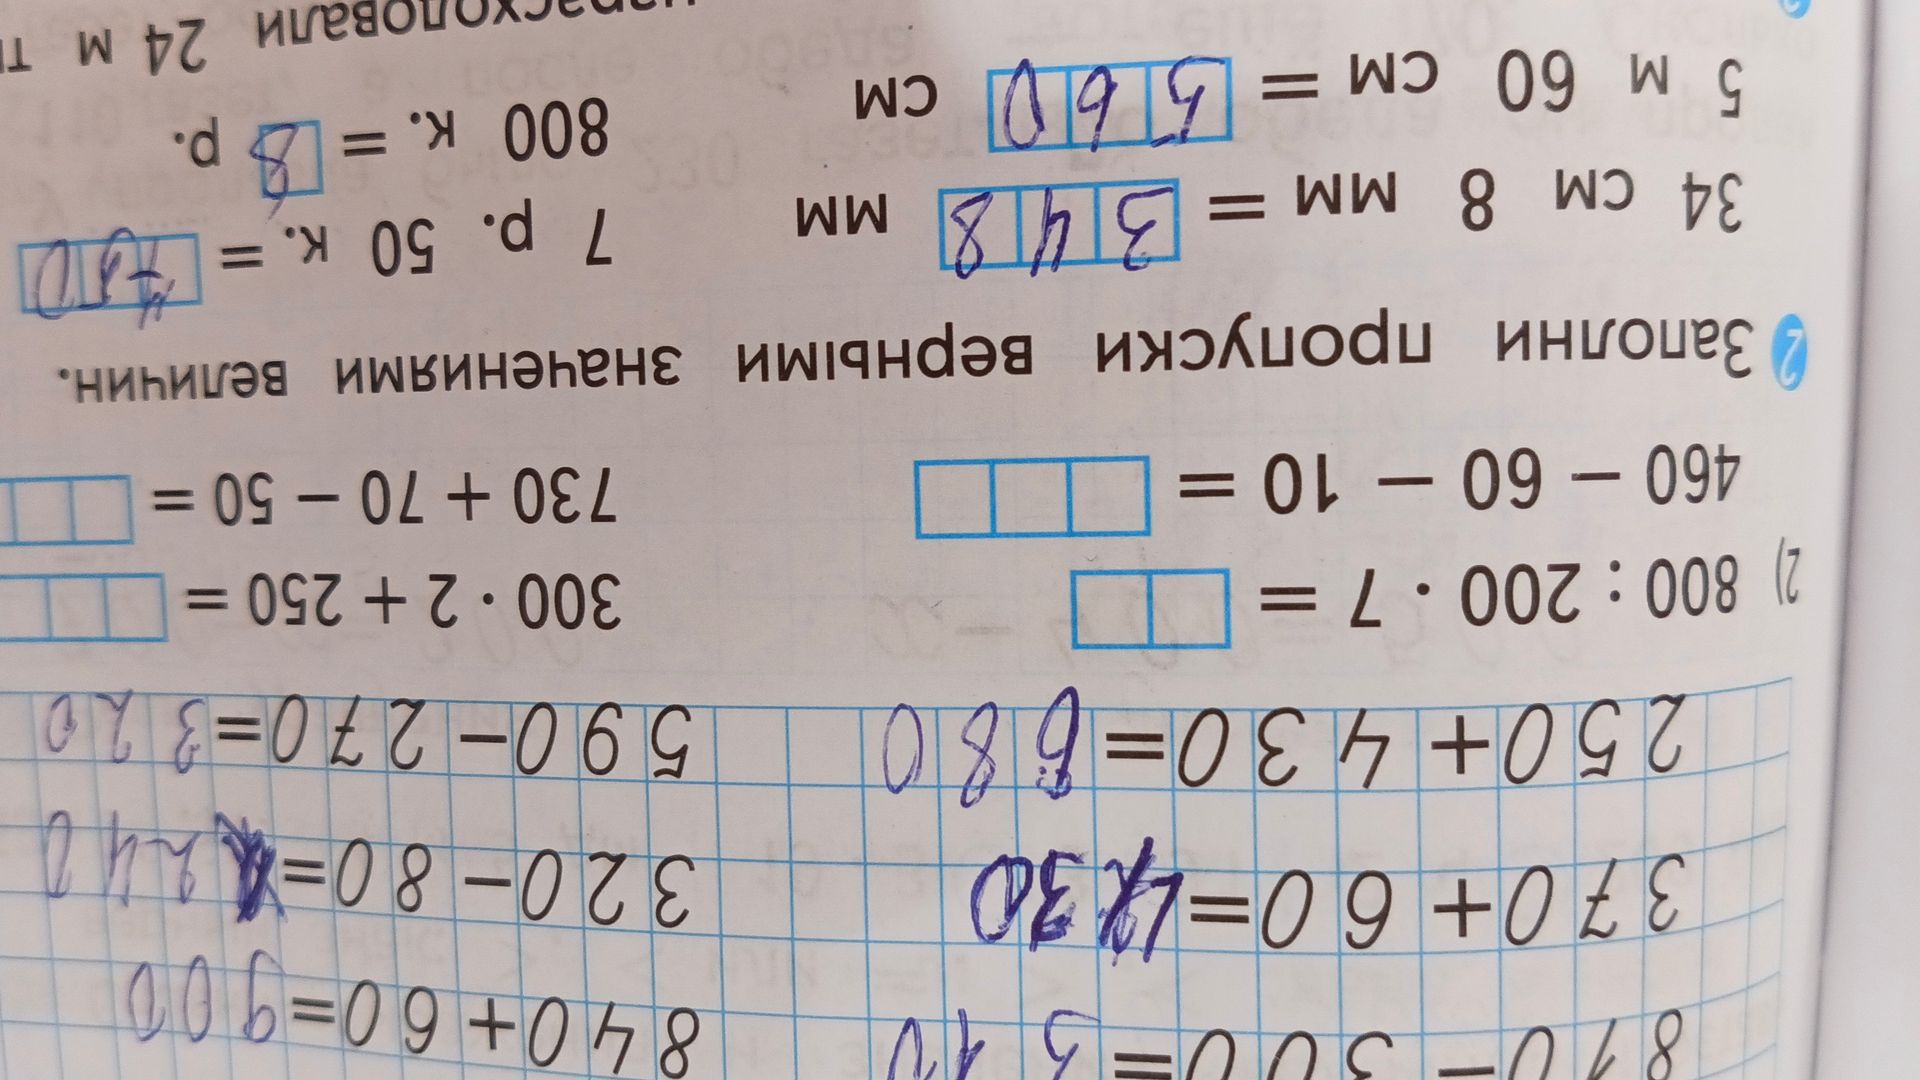 810-300=510 840+60=900
370+60=430 320-80=240
250+430=680 590-270=320
2) 800 : 200 · 7 = 300 · 2 + 250 =
460 – 60 – 10 = 730 + 70 – 50 =
2 Заполни пропуски верными значениями величин.
34 см 8 мм = 348 мм 7 р. 50 к. = 750
5 м 60 см = 560 см 800 к. = 8 р.
24 м